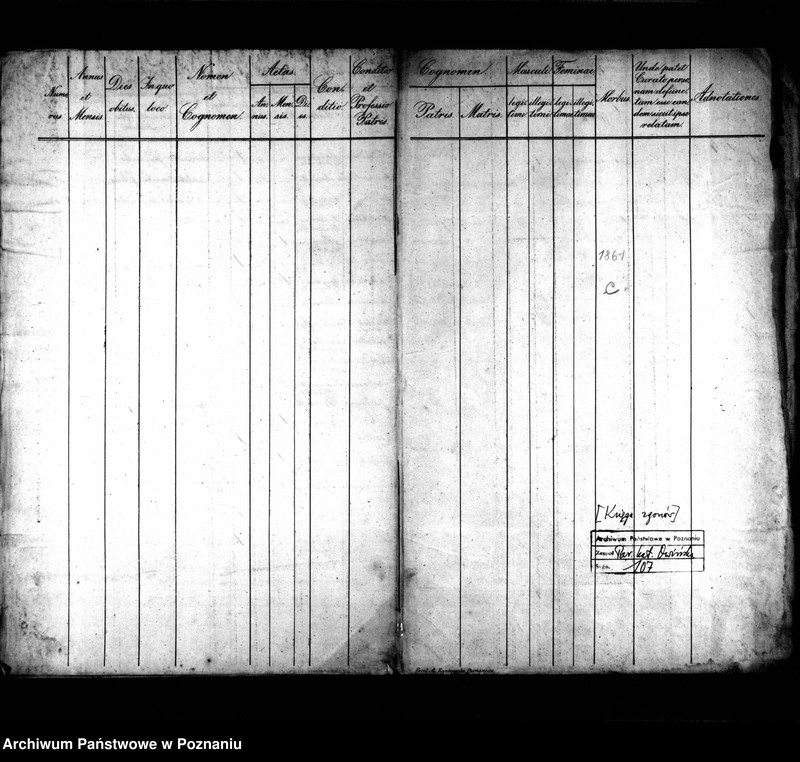 Numerus
Annus et Mensis
Dies obitus.
In quo loco
Nomen et Cognomen.
Aetas.
Annus.
Mensis.
Dies.
Conditio
Conditio et Professio Patris.
Cognomen.
Patris.
Matris.
Masculi
legitimi
illegitimi
Feminae
legitimae
illegitimae
Morbus.
Unde patet Curato personam defunctam esse eandem sicut ipso relatam.
Adnotationes.
1861
C.
[Księga zgonów]
Archiwum Państwowe w Poznaniu
Zespół Par. kat. Owińska
Sygn. 107
Archiwum Państwowe w Poznaniu